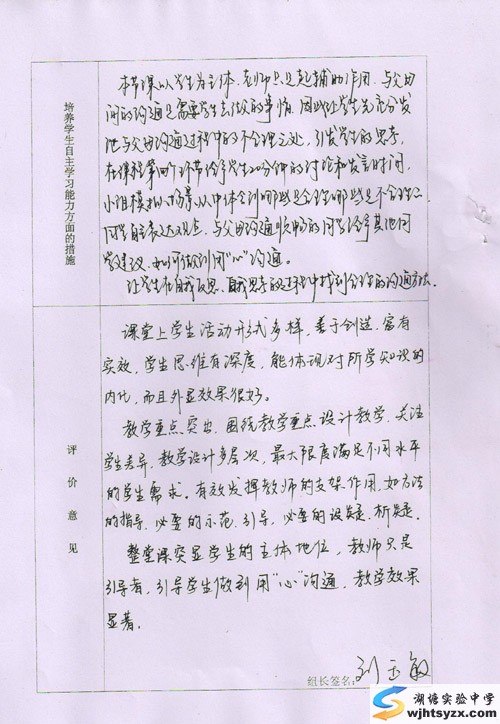 培养学生自主学习能力方面的措施
本节课以学生为主体，老师只是起辅助作用，与父母
间的沟通是需要学生去做的事情，因此让学生充分发
现与父母沟通过程中的不合理之处，引发学生的思考，
在课程第四个环节给予学生20分钟的讨论和发言时间，
小组模拟小场景，从中体会到哪些是合理哪些是不合理
同学自表达观点，与父母沟通顺畅的同学给予其他同
学建议，如何做到用“心”沟通。
让学生在自我反思、自我思考的过程中找到合理的沟通方法。
评价意见
课堂上学生活动形式多样，善于创造，富有
实效，学生思维有深度，能体现对所学知识的
内化，而且外显效果很好。
教学重点突出，围绕教学重点设计教学，关注
学生差异，教学设计多层次，最大限度满足不同水平
的学生需求。有效发挥教师的支架作用，如方法
的指导，必要的示范、引导，必要的设疑、析疑。
整堂课突显学生的主体地位，教师只是
引导者，引导学生做到用“心”沟通，教学效果
显著。
组长签名：刘玉敏
湖塘实验中学
wjhtsyzx.com